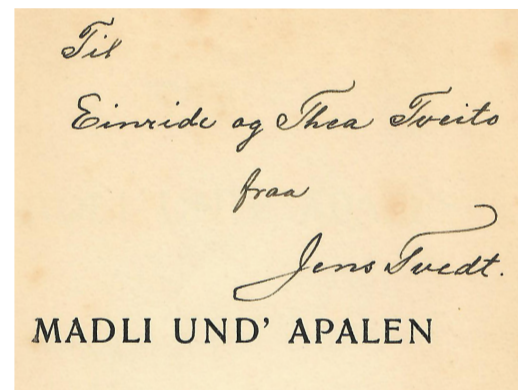 Til
Einride og Thea Tveito
fraa
Jens Tvedt.
MADLI UND' APALEN